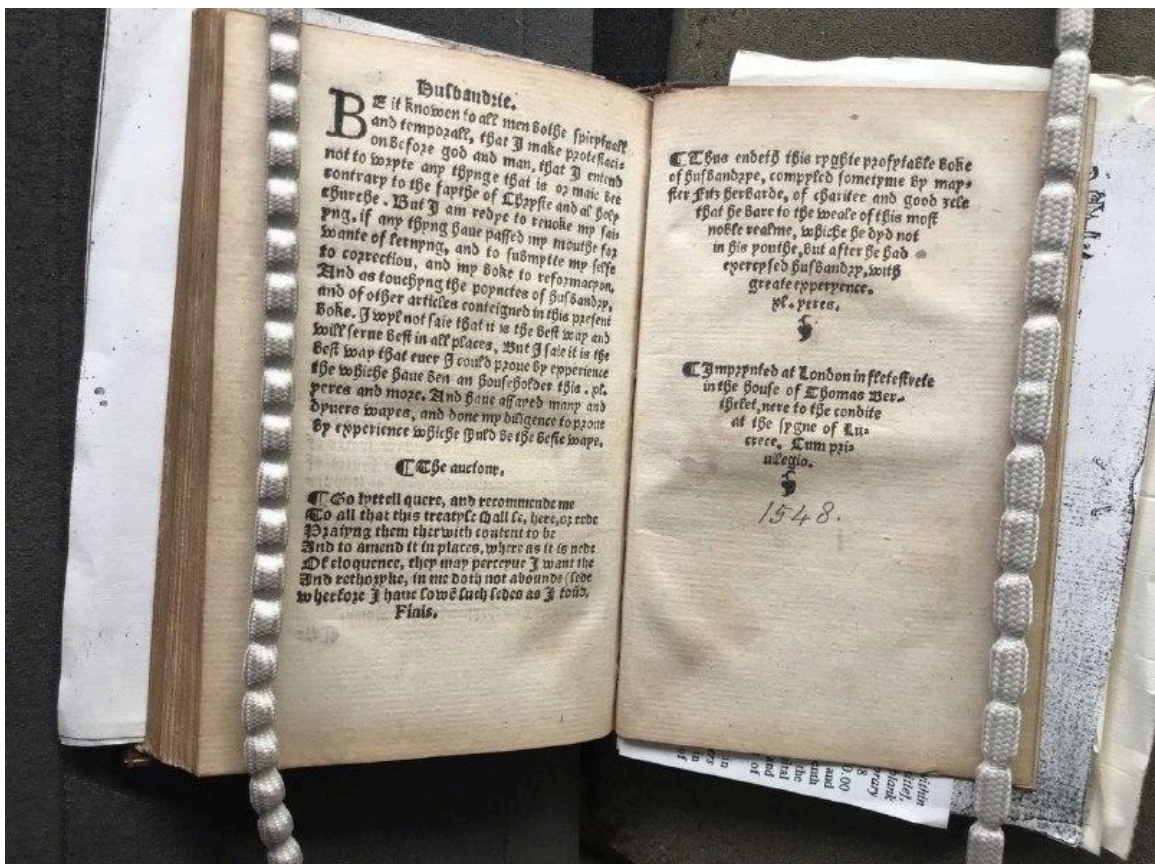 Husbandrie.
BE it knowen to all men bothe spirytuall
and temporall, that I make protestaci-
on before god and man, that I entend
not to wryte any thynge that is or maie bee
contrary to the faythe of Chryste and al holy
churche. But I am redye to reuoke my sai-
yng, if any thyng haue passed my mouthe for
wante of lernyng, and to submytte my selfe
to correction, and my boke to reformacyon.
And as touchyng the poynctes of husbandry,
and of other articles conteigned in this present
boke. I wyl not saie that it is the best way and
will serue best in all places, But I saie it is the
best way that euer I could proue by experience
the whiche haue ben an housholder this .xl.
yeres and more. And haue assayed many and
dyuers wayes, and done my diligence to proue
by experience whiche shuld be the beste waye.
¶ The auctour.
¶ Go lyttell quere, and recommende me
To all that this treatyse shall se, here, or rede
Praiyng them therwith content to be
And to amend it in places, where as it is nede
Of eloquence, they may perceyue I want the
And rethoryke, in me doth not abounde (sede
wherfore I haue sowē such sedes as I foūd.
Finis.
¶ Thus endeth this ryghte profytable boke
of husbandrye, compyled sometyme by may-
ster Fitzherbarde, of charitee and good zele
that he bare to the weale of this most
noble realme, whiche he dyd not
in his youthe, but after he had
exercysed husbandry, with
greate experyence.
xl. yeres.
¶ Imprynted at London in fletestrete
in the house of Thomas Ber-
thelet, nere to the condite
at the sygne of Lu-
crece. Cum pri-
uilegio.
1548.